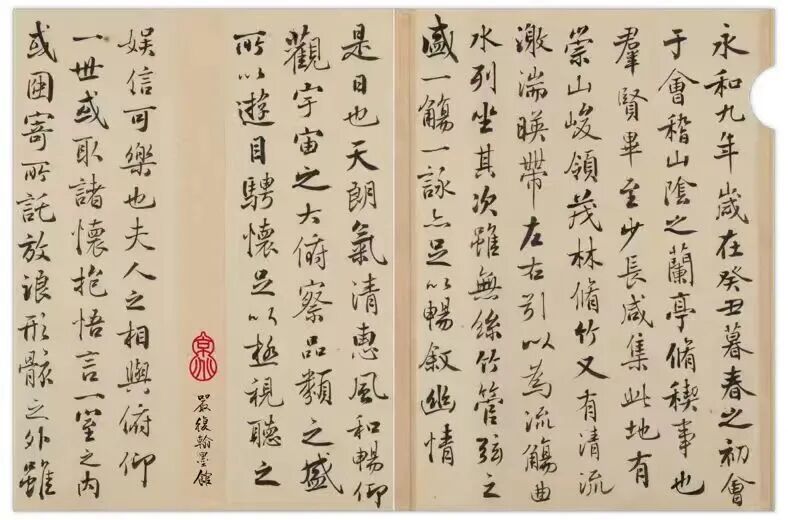 永和九年歲在癸丑暮春之初會
于會稽山陰之蘭亭脩稧事也
羣賢畢至少長咸集此地有
崇山峻領茂林脩竹又有清流
激湍暎帶左右引以為流觴曲
水列坐其次雖無絲竹管弦之
盛一觴一詠亦足以暢敘幽情
是日也天朗氣清惠風和暢仰
觀宇宙之大俯察品類之盛
所以遊目騁懷足以極視聽之
嚴復翰墨館
娛信可樂也夫人之相與俯仰
一世或取諸懷抱悟言一室之內
或因寄所託放浪形骸之外雖